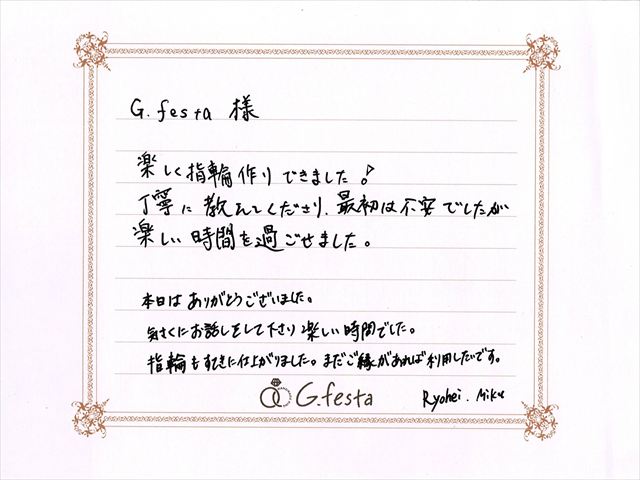 G.festa 様
楽しく指輪作りできました!
丁寧に教えてくださり、最初は不安でしたが
楽しい時間を過ごせました。
本日はありがとうございました。
気さくにお話しをして下さり楽しい時間でした。
指輪もすてきに仕上がりました。まだご縁があれば利用したいです。
G.festa
Ryohei. Miku